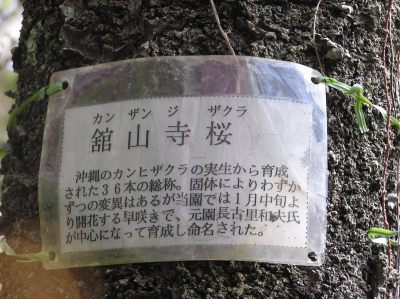 カンザンジ ザクラ
舘山寺桜
沖縄のカンヒザクラの実生から育成
された36本の総称。固体によりわずか
ずつの変異はあるが当園では1月中旬よ
り開花する早咲きで、元園長古里和夫氏
が中心になって育成し命名された。